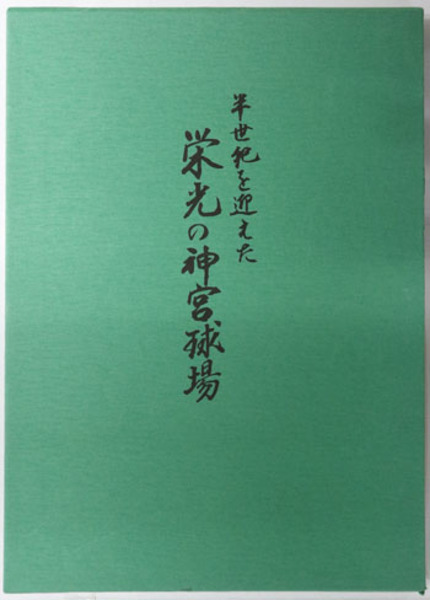 半世紀を迎えた
栄光の神宮球場